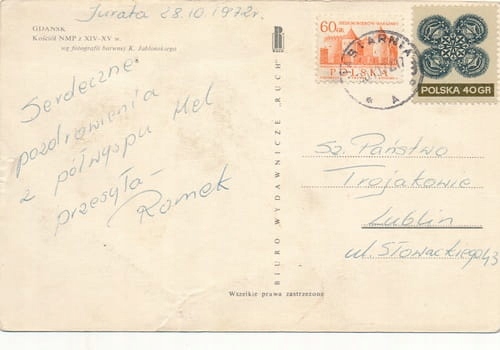 Jurata 28.10.1972r.
GDAŃSK
Kościół NMP z XIV-XV w.
wg fotografii barwnej K. Jabłońskiego
Serdeczne
pozdrowienia
z półwyspu Hel
przesyła-
Romek
BIURO WYDAWNICZE „RUCH”
Wszelkie prawa zastrzeżone
60 GR
POLSKA
JASTARNIA
A
POLSKA 40 GR
Sz. Państwo
Trojakowie
Lublin
ul. Słowackiego 43